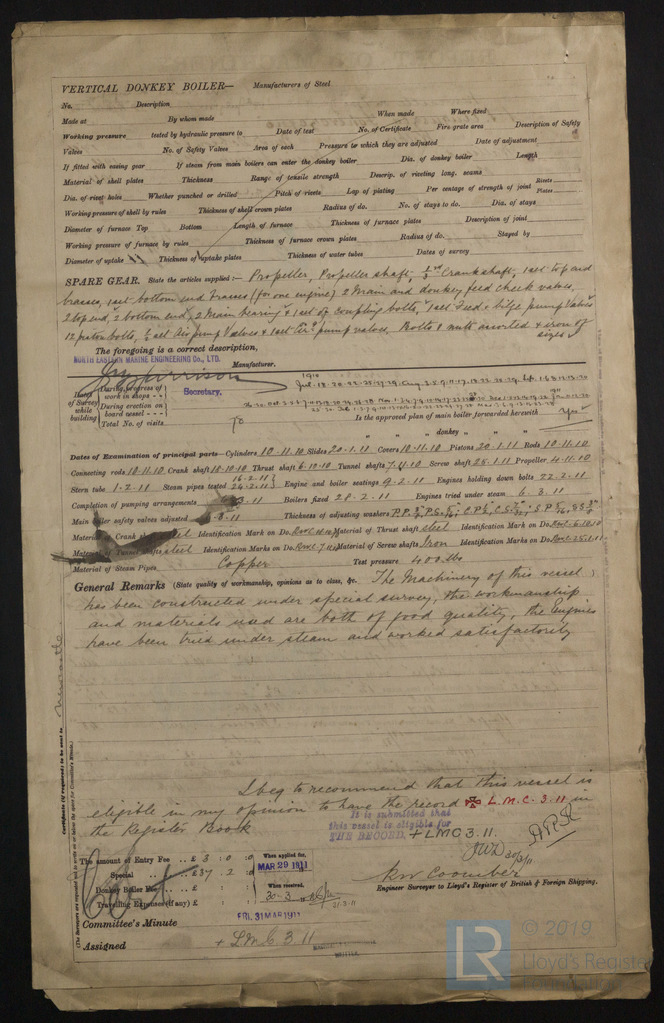 VERTICAL DONKEY BOILER— Manufacturers of Steel
No. Description
Made at By whom made When made Where fixed
Working pressure tested by hydraulic pressure to Date of test No. of Certificate Fire grate area Description of Safety
Valves No. of Safety Valves Area of each Pressure to which they are adjusted Date of adjustment
If fitted with easing gear If steam from main boilers can enter the donkey boiler Dia. of donkey boiler Length
Material of shell plates Thickness Range of tensile strength Descrip. of riveting long. seams
Dia. of rivet holes Whether punched or drilled Pitch of rivets Lap of plating Per centage of strength of joint Rivets Plates
Working pressure of shell by rules Thickness of shell crown plates Radius of do. No. of stays to do. Dia. of stays
Diameter of furnace Top Bottom Length of furnace Thickness of furnace plates Description of joint
Working pressure of furnace by rules Thickness of furnace crown plates Radius of do. Stayed by
Diameter of uptake Thickness of uptake plates Thickness of water tubes Dates of survey
SPARE GEAR. State the articles supplied:— Propeller, Propeller shaft, Crankshaft, 1 set top end
brasses, 1 set bottom end brasses (for one engine) 2 Main and donkey feed check valves,
2 top end, 2 bottom end, 2 Main bearing & 1 set of coupling bolts, 1 set Feed & bilge pump Valves
12 piston bolts, ½ set Air pump Valves & 1 set pump valves. Bolts & nuts assorted & iron of
sizes
The foregoing is a correct description,
NORTH EASTERN MARINE ENGINEERING Co., LTD. Manufacturer.
Secretary.
1910
Dates of Survey while building
During progress of work in shops - -
During erection on board vessel - - -
Total No. of visits 70
Is the approved plan of main boiler forwarded herewith Yes
" " " donkey " " "
Dates of Examination of principal parts—Cylinders 10.11.10 Slides 20.1.11 Covers 10.11.10 Pistons 20.1.11 Rods 10.11.10
Connecting rods 10.11.10 Crank shaft 18.10.10 Thrust shaft 6.10.10 Tunnel shafts 7.11.10 Screw shaft 25.1.11 Propeller 4.11.10
Stern tube 1.2.11 Steam pipes tested 16.2.11 24.2.11 Engine and boiler seatings 9.2.11 Engines holding down bolts 22.2.11
Completion of pumping arrangements 3.11 Boilers fixed 28.2.11 Engines tried under steam 6.3.11
Main boiler safety valves adjusted 3.11 Thickness of adjusting washers
Material of Crank shaft Steel Identification Mark on Do. Material of Thrust shaft Steel Identification Mark on Do.
Material of Tunnel shafts Steel Identification Marks on Do. Material of Screw shafts Iron Identification Marks on Do.
Material of Steam Pipes Copper Test pressure 400 lbs
General Remarks (State quality of workmanship, opinions as to class, &c. The Machinery of this vessel
has been constructed under special survey, the workmanship
and materials used are both of good quality, the Engines
have been tried under steam and worked satisfactorily
I beg to recommend that this vessel is
eligible in my opinion to have the record ✠ L.M.C. 3.11 in
the Register Book
It is submitted that
this vessel is eligible for
THE RECORD. + LMC 3.11.
30/3/11
The amount of Entry Fee .. £ 3 : 0 : 0
Special .. £ 37 : 2 :
Donkey Boiler Fee .. £
Travelling Expenses (if any) £
When applied for,
MAR 29 1911
When received,
30.3.11
31.3.11
Engineer Surveyor to Lloyd's Register of British & Foreign Shipping.
Committee's Minute FRI. 31 MAR 1911
Assigned + LMC 3.11
Newcastle
© 2019
LR
Lloyd's Register
Foundation